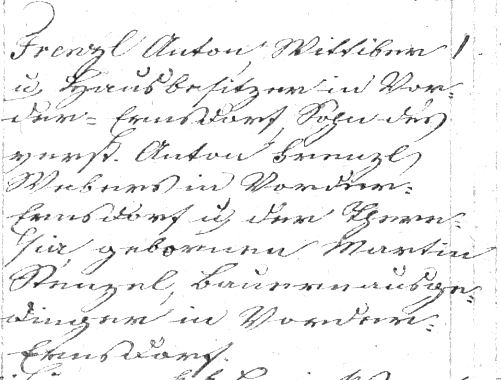 Frenzl Anton, Wittiber 1
u. Hausbesitzer in Vor-
der-Ernsdorf, Sohn des
verst. Anton Frenzl
Webers in Vorder-
Ernsdorf u. der There-
sia, gebornen Martin
Stenzel, Bauernausge-
dinger in Vorder-
Ernsdorf.